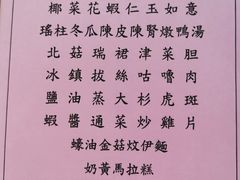 椰菜花蝦仁玉如意
瑤柱冬瓜陳皮陳腎燉鴨湯
北菇瑞裙津菜胆
冰鎮拔絲咕嚕肉
鹽油蒸大杉虎斑
蝦醬通菜炒雞片
蠔油金菇炆伊麵
奶黃馬拉糕